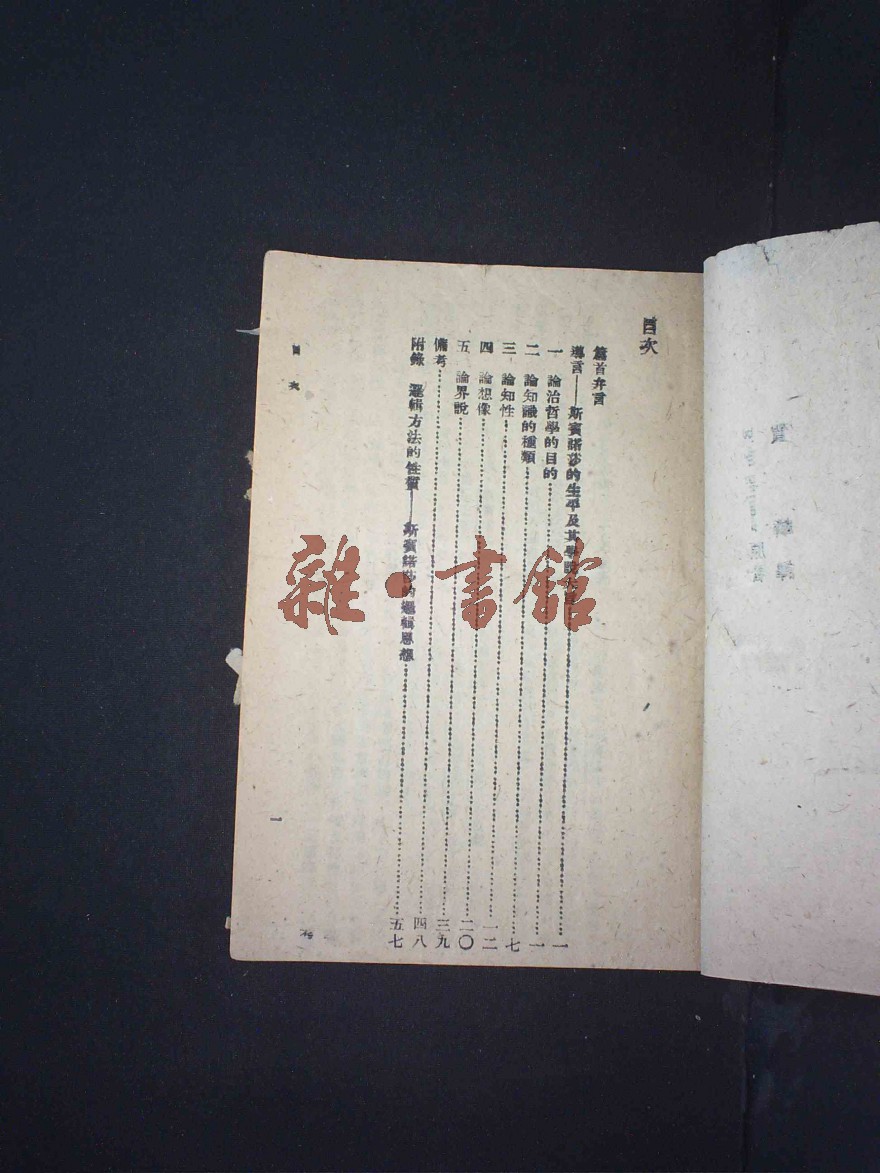 目次
篇首弁言
導言——斯賓諾莎的生平及其學說大……一
一 論治哲學的目的……一
二 論知識的種類……七
三 論知性……一二
四 論想像……二〇
五 論界說……三九
備考……四八
附錄 邏輯方法的性質——斯賓諾莎的邏輯思想……五七
目 次
一
雜·書館